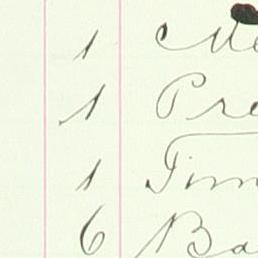 1 Me
1 Pre
1 Tim
6 Ba